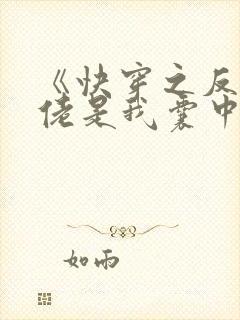 《快穿之反
佬是我囊中
如雨